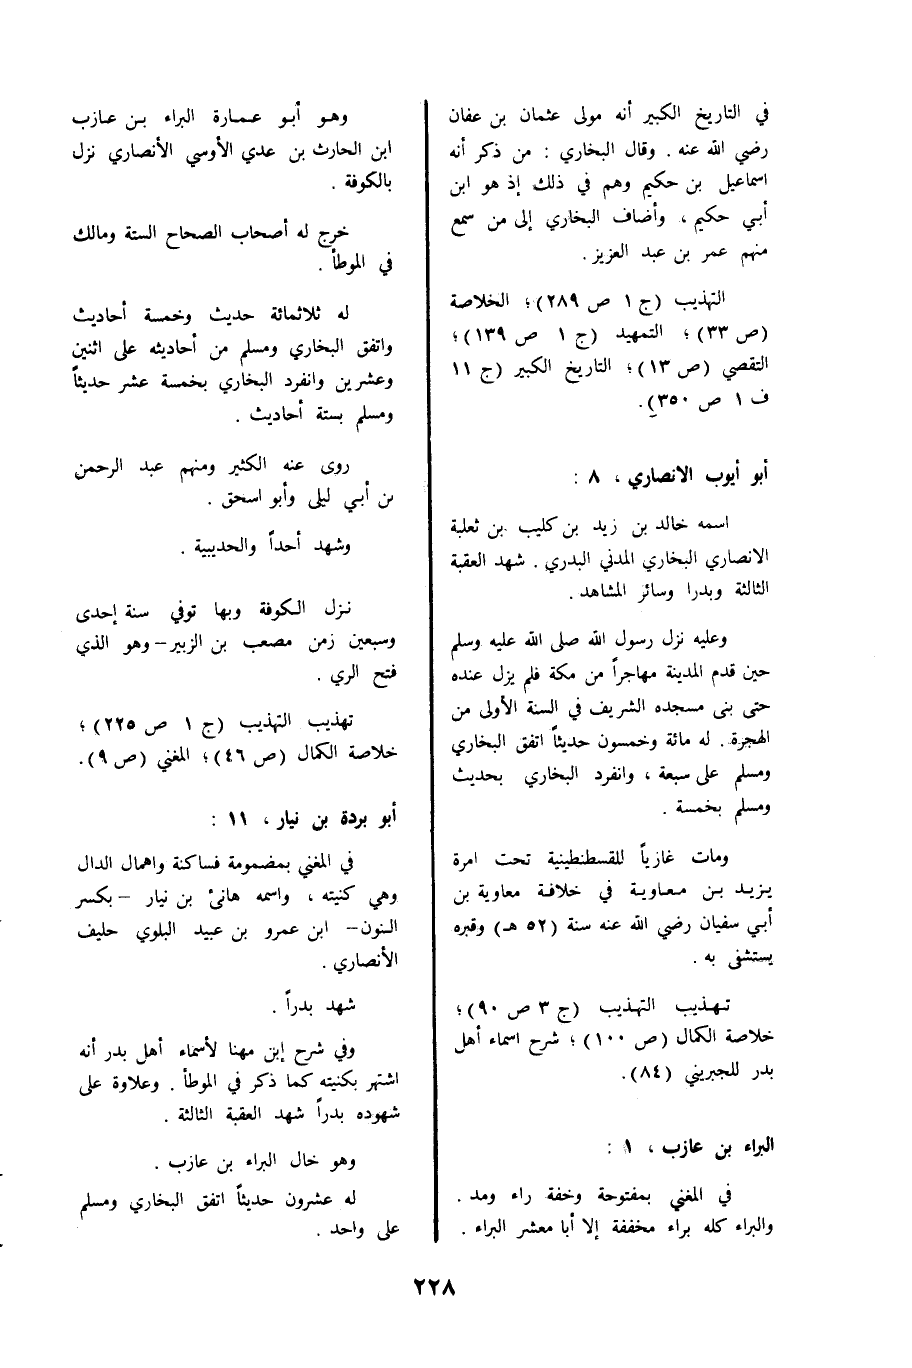 في التاريخ الكبير أنه مولى عثمان بن عفان
رضي الله عنه . وقال البخاري : من ذكر أنه
اسماعيل بن حكيم وهم في ذلك إذ هو ابن
أبي حكيم ، وأضاف البخاري إلى من سمع
منهم عمر بن عبد العزيز .
التهذيب (ج ١ ص ٢٨٩) ؛ الخلاصة
(ص ٣٣) ؛ التمهيد (ج ١ ص ١٣٩) ؛
التقصي (ص ١٣) ؛ التاريخ الكبير (ج ١١
ف ١ ص ٣٥٠) .
أبو أيوب الانصاري ، ٨ :
اسمه خالد بن زيد بن كليب بن ثعلبة
الانصاري البخاري المدني البدري . شهد العقبة
الثالثة وبدرا وسائر المشاهد .
وعليه نزل رسول الله صلى الله عليه وسلم
حين قدم المدينة مهاجراً من مكة فلم يزل عنده
حتى بنى مسجده الشريف في السنة الأولى من
الهجرة . له مائة وخمسون حديثاً اتفق البخاري
ومسلم على سبعة ، وانفرد البخاري بحديث
ومسلم بخمسة .
ومات غازياً للقسطنطينية تحت امرة
يزيد بن معاوية في خلافة معاوية بن
أبي سفيان رضي الله عنه سنة (٥٢ هـ) وقبره
يستشفى به .
تهذيب التهذيب (ج ٣ ص ٩٠) ؛
خلاصة الكمال (ص ١٠٠) ؛ شرح اسماء أهل
بدر للجبريني (٨٤) .
البراء بن عازب ، ١ :
في المغني بمفتوحة وخفة راء ومد .
والبراء كله براء مخففة إلا أبا معشر البراء .
وهو أبو عمارة البراء بن عازب
ابن الحارث بن عدي الأوسي الأنصاري نزل
بالكوفة .
خرج له أصحاب الصحاح الستة ومالك
في الموطأ .
له ثلاثمائة حديث وخمسة أحاديث
واتفق البخاري ومسلم من أحاديثه على اثنين
وعشرين وانفرد البخاري بخمسة عشر حديثاً
ومسلم بستة أحاديث .
روى عنه الكثير ومنهم عبد الرحمن
بن أبي ليلى وأبو اسحق .
وشهد أحداً والحديبية .
نزل الكوفة وبها توفي سنة إحدى
وسبعين زمن مصعب بن الزبير – وهو الذي
فتح الري .
تهذيب التهذيب (ج ١ ص ٢٢٥) ؛
خلاصة الكمال (ص ٤٦) ؛ المغني (ص ٩) .
أبو بردة بن نيار ، ١١ :
في المغني بمضمومة فساكنة واهمال الدال
وهي كنيته ، واسمه هانئ بن نيار – بكسر
النون – ابن عمرو بن عبيد البلوي حليف
الأنصاري .
شهد بدراً .
وفي شرح إبن مهنا لأسماء أهل بدر أنه
اشتهر بكنيته كما ذكر في الموطأ . وعلاوة على
شهوده بدراً شهد العقبة الثالثة .
وهو خال البراء بن عازب .
له عشرون حديثاً اتفق البخاري ومسلم
على واحد .
٢٢٨